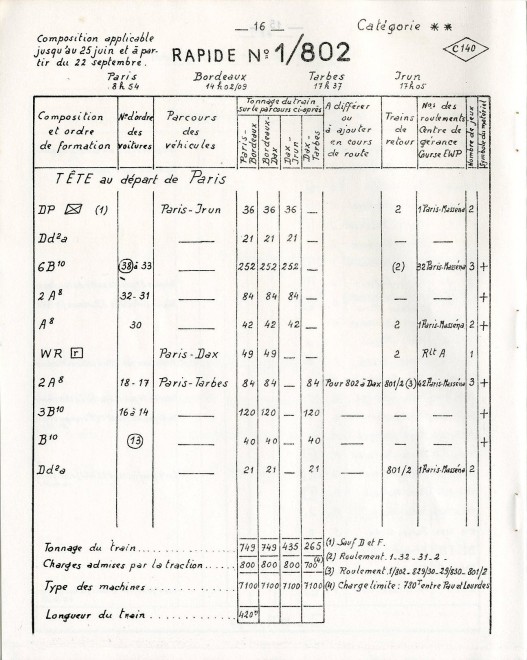 — 16 —
Catégorie * *
Composition applicable
jusqu'au 25 juin et à par-
tir du 22 septembre.
RAPIDE Nº 1/802
C 140
Paris Bordeaux Tarbes Irun
8h54 14h02/09 17h37 17h05
Composition et ordre de formation
Nºs d'ordre des voitures
Parcours des véhicules
Tonnage du train sur le parcours ci-après
Paris-Bordeaux
Bordeaux-Dax
Dax-Irun
Dax-Tarbes
A différer ou à ajouter en cours de route
Trains de retour
Nºs des roulements Centre de gérance Gurse EWP
Nombre de jeux
Symbole du matériel
TÊTE au départ de Paris
DP (1) Paris-Irun 36 36 36 — 2 1 Paris-Masséna 2
Dd²a — 21 21 21 — — —
6B¹⁰ 38 à 33 — 252 252 252 — (2) 32 Paris-Masséna 3 +
2A⁸ 32-31 — 84 84 84 — — — +
A⁸ 30 — 42 42 42 — 2 1 Paris-Masséna 2 +
WR r Paris-Dax 49 49 — — 2 Rlt A 1
2A⁸ 18-17 Paris-Tarbes 84 84 — 84 Pour 802 à Dax 801/2 (3) 42 Paris-Masséna 3 +
3B¹⁰ 16 à 14 — 120 120 — 120 — — — +
B¹⁰ 13 — 40 40 — 40 — — — +
Dd²a — 21 21 — 21 — 801/2 1 Paris-Masséna 2
Tonnage du train .......... 749 749 435 265
Charges admises par la traction ....... 800 800 800 700 (4)
Type des machines .......... 7100 7100 7100 7100
Longueur du train .......... 420ᵐ
(1) Sauf D et F.
(2) Roulement. 1-32-31-2-
(3) Roulement. 1/802-829/30-29/830-801/2
(4) Charge limite : 780ᵀ entre Pau et Lourdes